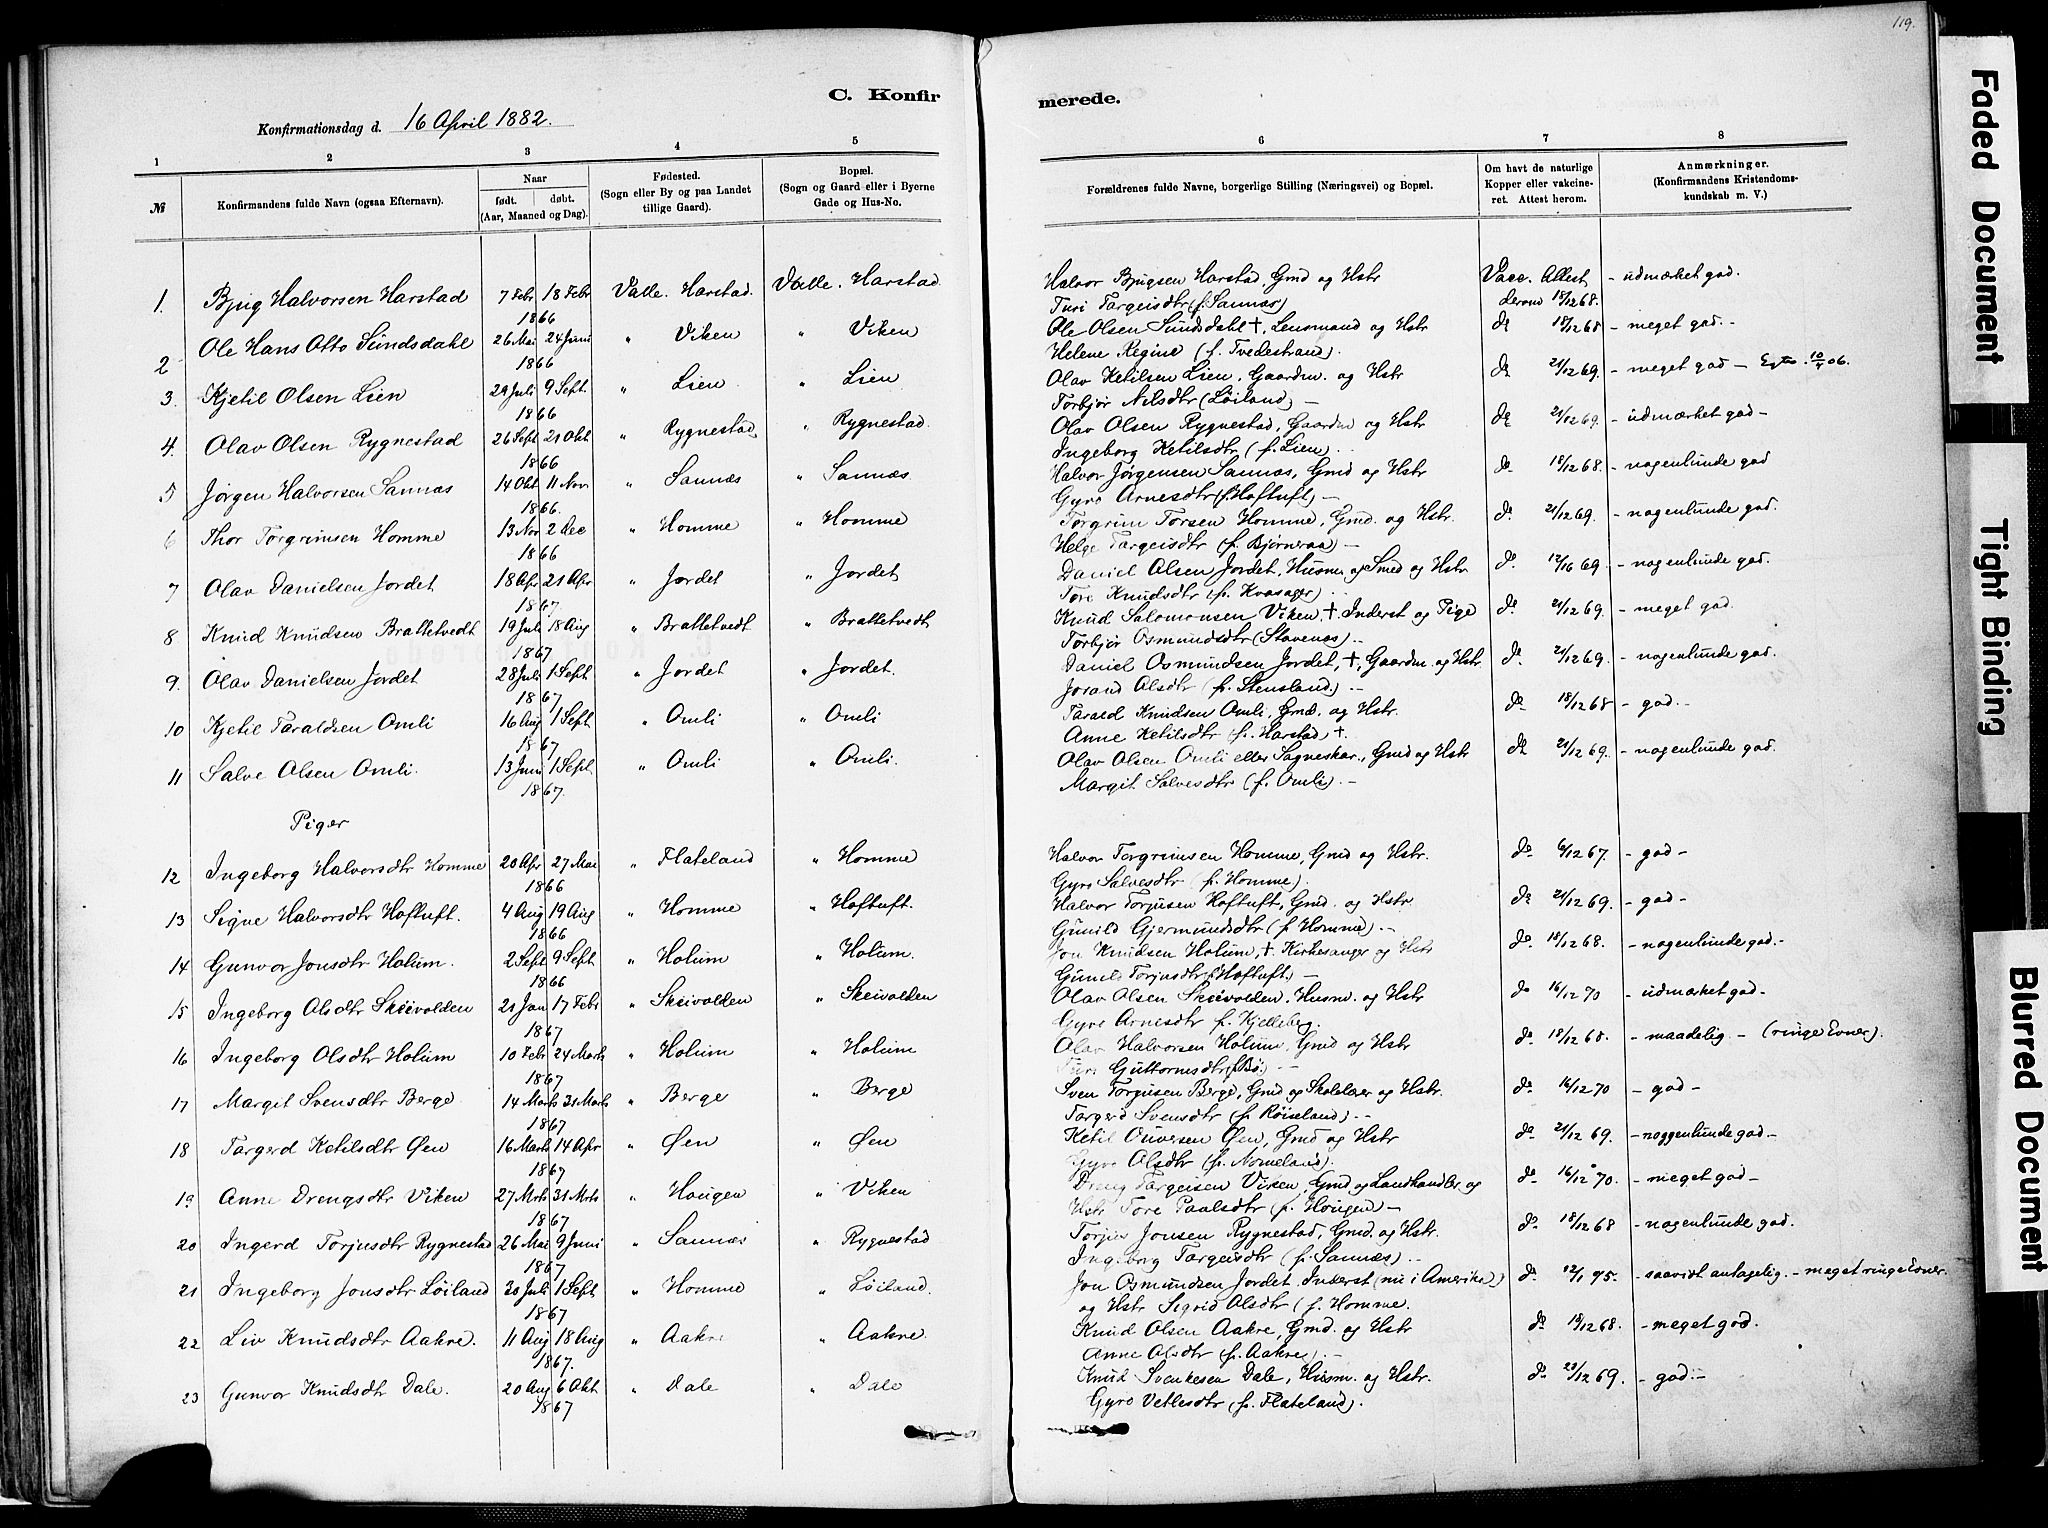 119.
C. Konfirmerede.
Konfirmationsdag d. 16 April 1882.
1 2 3 4 5 6 7 8
№ Konfirmandens fulde Navn (ogsaa Efternavn). Naar født. døbt. (Aar, Maaned og Dag). Fødested. (Sogn eller By og paa Landet tillige Gaard). Bopæl. (Sogn og Gaard eller i Byerne Gade og Hus-No. Forældrenes fulde Navne, borgerlige Stilling (Næringsvei) og Bopæl. Om havt de naturlige Kopper eller vakcineret. Attest herom. Anmærkninger. (Konfirmandens Kristendomskundskab m. V.)
1. Bjug Halvorsen Harstad 7 Febr 18 Febr 1866 Valle. Harstad. Valle. Harstad Halvor Bjugsen Harstad Gmd og Hstr Vacc. Attest - udmærket god.
Turi Targeisdtr (f. Sannæs) derom 18/12 68.
2 Ole Hans Otto Sundsdahl 26 Mai 24 Juni 1866 " Viken " Viken Ole Olsen Sundsdahl †, Lensmand og Hstr do 18/12 68 - meget god. -
Helene Regine (f. Tvedestrand).
3. Kjetil Olsen Lien 29 Juli 9 Sept. 1866 " Lien " Lien Olav Ketilsen Lien, Gaardm. og Hstr do 21/12 69. - meget god -
Torbjør Nilsdtr (Løiland) -
4. Olav Olsen Rygnestad 26 Sept 21 Okt 1866 " Rygnestad " Rygnestad. Olav Olsen Rygnestad, Gaardm og Hstr do 21/12 69. - udmærket god -
Ingeborg Ketilsdtr (f. Lien).
5 Jørgen Halvorsen Sannæs 14 Okt 11 Nov 1866. " Sannæs " Sannæs. Halvor Jørgensen Sannæs, Gmd og Hstr do 18/12 68. - nogenlunde god
Gyro Arnesdtr (f. Hoftuft) -
6 Thor Torgrimsen Homme 13 Nov 2 Dec 1866 " Homme " Homme Torgrim Torsen Homme, Gmd. og Hstr. do 21/12 69. - nogenlunde god.
Helge Targeisdtr (f. Bjørneraa) -
7 Olav Danielsen Jordet 18 Apr 21 Apr 1867. " Jordet " Jordet Daniel Olsen Jordet, Husm og Smed og Hstr do 69. - nogenlunde god.
Tore Knudsdtr (f. Kvasager).
8 Knud Knudsen Brattetvedt 19 Juli 18 Aug 1867 " Brattetvedt " Brattetvedt Knud Salomonsen Viken † Inderst og Pige do 21/12 69. - meget god.
Torbjør Osmundsdtr (Stavenes) -
9. Olav Danielsen Jordet 28 Juli 1 Sept 1867 " Jordet " Jordet. Daniel Osmundsen Jordet, †, Gaardm. og Hstr. do 21/12 69. - nogenlunde god.
Jorand Olsdtr (f. Stensland). -
10 Kjetil Taraldsen Omli 16 Aug 1 Sept. 1867 " Omli " Omli Tarald Knudsen Omli, Gmd. og Hstr. do 18/12 68 - god. -
Anne Ketilsdtr (f. Harstad) †.
11 Salve Olsen Omli. 13 Juni 1 Sept. 1867. " Omli " Omli. Olav Olsen Omli eller Sagneskar, Gmd og Hstr do 21/12 69. - nogenlunde god.
Margit Salvesdtr (f. Omli). -
Piger
12 Ingeborg Halvorsdtr Homme 20 Apr 27 Mai 1866 " Flateland " Homme Halvor Torgrimsen Homme, Gmd og Hstr. do 6/12 67. - god -
Gyro Salvesdtr (f. Homme).
13 Signe Halvorsdtr Hoftuft. 4 Aug 19 Aug 1866 " Homme " Hoftuft. Halvor Torjusen Hoftuft, Gmd. og Hstr. do 21/12 69. - god -
Gunild Gjermundsdtr (f. Homme). -
14 Gunvor Jonsdtr Holum. 2 Sept 9 Sept 1866 " Holum " Holum. Jon Knudsen Holum, † Kirkesanger og Hstr do 18/12 68. - nogenlunde god. -
Gunild Torjusdtr (f. Hoftuft.) -
15 Ingeborg Olsdtr Skeivolden 21 Jan 17 Febr 1867 " Skeivolden " Skeivolden Olav Olsen Skeivolden, Husm. og Hstr do 16/12 70 - udmærket god -
Gyro Arnesdtr f. Kjelleberg.
16 Ingeborg Olsdtr Holum 10 Febr 24 Marts 1867 " Holum " Holum Olav Halvorsen Holum, Gmd og Hstr do 18/12 68. - maadelig - (ringe Evner).
Turi Guttormsdtr (Bø). -
17 Margit Svensdtr Berge 14 Marts 31 Marts 1867 " Berge " Berge Sven Torjusen Berge, Gmd og Skolelærer og Hstr. do 16/12 70 - god -
Targerd Svensdtr (f. Røiseland). -
18 Targerd Ketilsdtr Øen 16 Marts 14 Apr 1867 " Øen " Øen Ketil Ouversen Øen, Gmd og Hstr do 21/12 69. - noggenlunde god -
Gyro Olsdtr (f. Nomeland).
19 Anne Drengsdtr Viken 27 Mrts 31 Mrts 1867 " Hougen " Viken Dreng Targeisen Viken, Gmd og Landhandler og do 16/12 70. - meget god -
Hstr Tore Paalsdtr (f. Hougen) -
20 Ingerd Torjusdtr Rygnestad 26 Mai 9 Juni 1867 " Sannæs " Rygnestad Torjus Jonsen Rygnestad, Gmd. og Hstr. do 18/12 68 - nogenlunde god.
Ingeborg Targeisdtr (f. Sannæs). -
21 Ingeborg Jonsdtr Løiland 30 Juli 1 Sept 1867 " Homme " Løiland. Jon Osmundsen Jordet Inderst (nu i Amerika) do 12/1 75. - saavidt antagelig. - meget ringe Evner.
og Hstr Sigrid Olsdtr (f. Homme.
22 Liv Knudsdtr Aakre. 11 Aug 18 Aug 1867. " Aakre " Aakre. Knud Olsen Aakre, Gmd. og Hstr do 68. - meget god.
Anne Olsdtr (f. Aakre). -
23 Gunvor Knudsdtr Dale. 20 Aug 6 Okt 1867 " Dale " Dale Knud Svenkesen Dale, Husm. og Hstr. do 69. - god. -
Gyro Vetlesdtr (f. Flateland).
Faded Document
Tight Binding
Blurred Document